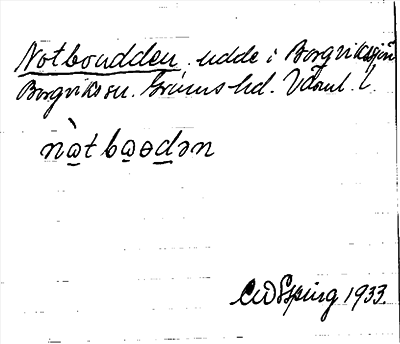 Notboudden, udde i Borgvikssjön
Borgviks sn. Grums hd. Värml. l.
nàtbaɵdən
CW Spring 1933.